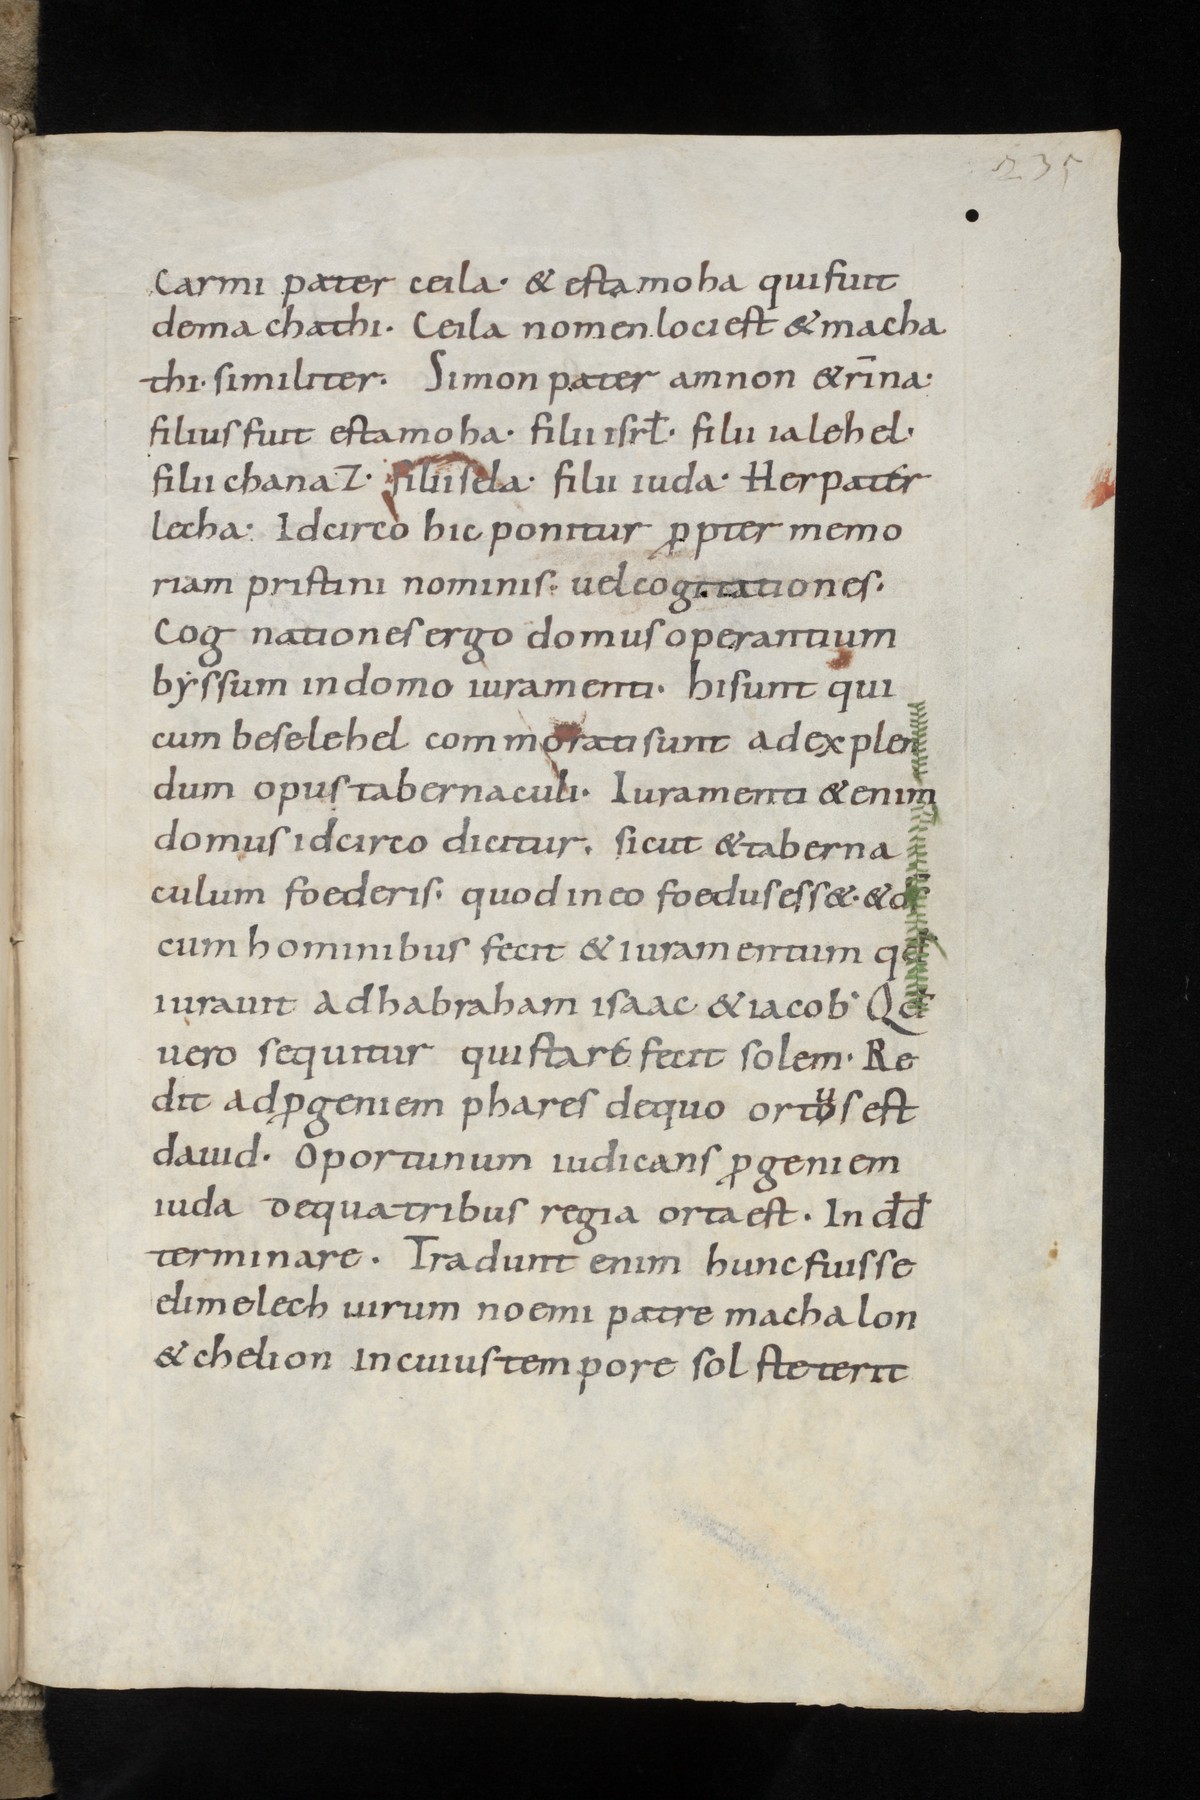 235
Carmi pater ceila· & estamoha qui fuit
de machathi· Ceila nomen loci est & macha
thi· similiter· Simon pater amnon & rīna·
filius fuit estamoha· filii isrł· filii ialehel·
filii chanaz· filii sela· filii iuda· Her pater
lecha· Idcirco hic ponitur ꝓpter memo
riam pristini nominis· uel cogitationes·
Cog nationes ergo domus operantium
byssum in domo iuramenti· hi sunt qui
cum beselehel commorati sunt ad explen
dum opus tabernaculi· Iuramenti & enim
domus idcirco dicitur, sicut & taberna
culum foederis· quod in eo foedus ess&· & ds̄
cum hominibus fecit & iuramentum qđ
iurauit ad habraham isaac & iacob· Qđ
uero sequitur qui stare fecit solem· Re
dit ad ꝓgeniem phares de quo ortus est
dauid· Oportunum iudicans ꝓgeniem
iuda de qua tribus regia orta est· In đđ
terminare· Tradunt enim hunc fuisse
elimelech uirum noemi patre machalon
& chelion in cuius tempore sol steterit